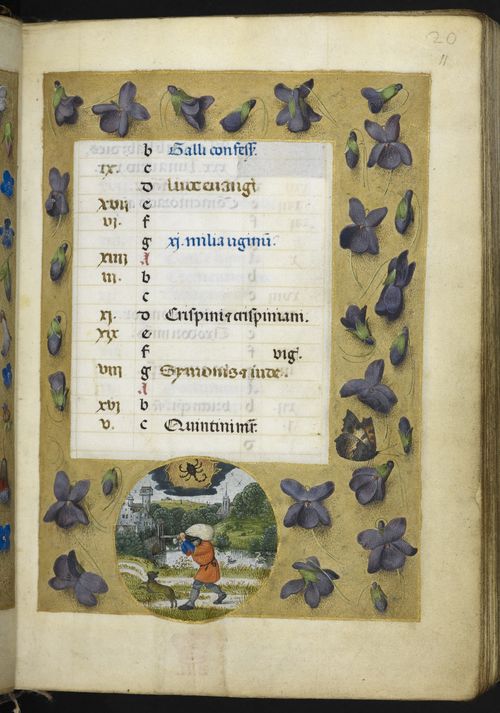 20
11
b Galli confess.
ix. c
d Luce euangl
xvii e
vi. f
g xj. milia uginū.
xiiii A
iii. b
c
xi. d Crispini ⁊ crispiniani.
xix e
f vig.
viii g Symonis ⁊ iude.
A
xvj b
v. c Quintini mr.